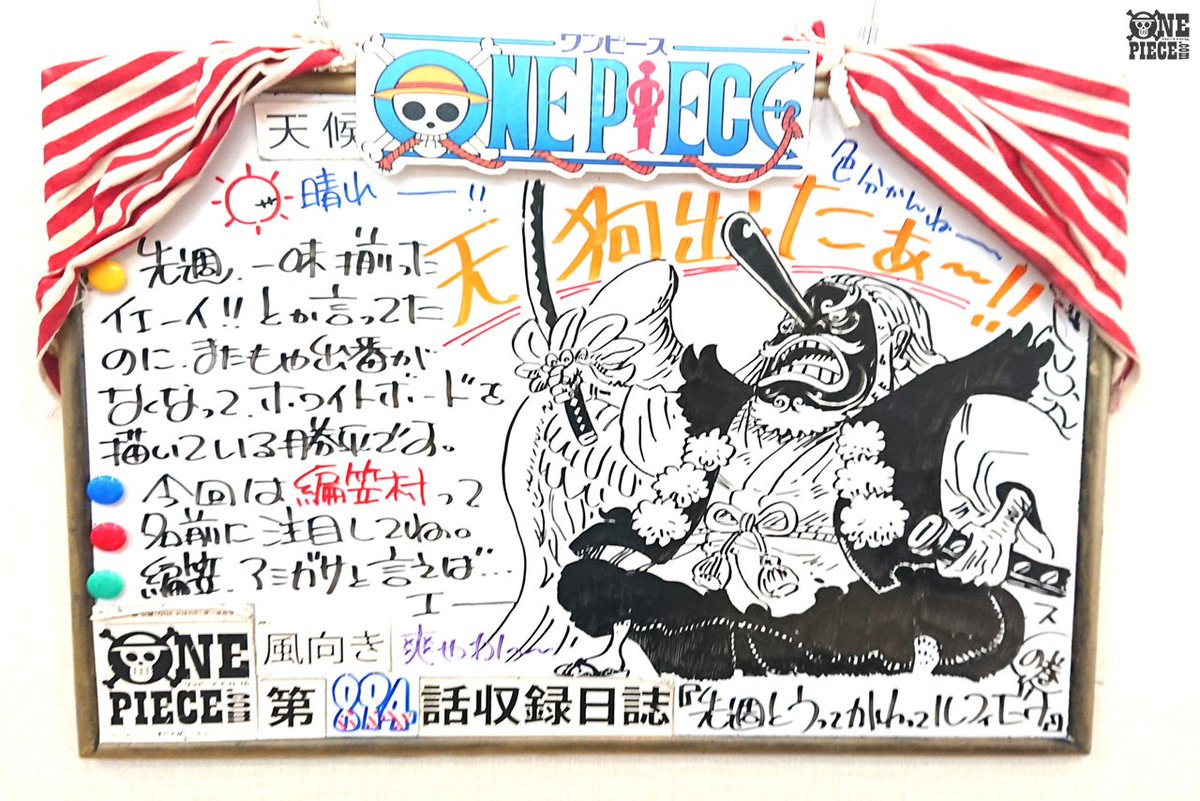 ONE
PIECE.COM
ワンピース
ONE PIECE
天候
晴れ ー!!
天狗出たあ〜!!
先週、一味揃った
イェーイ!!とか言ってた
のに、またもや出番が
なくなって、ホワイトボードを
描いている勝平です。
今回は編笠村って
名前に注目してね。
編笠、アミガサと言えば…
エー
ONE
PIECE.COM
風向き
爽やか
第 894 話収録日誌
『先週とうってかわってルフィとゾロ
ス
の巻